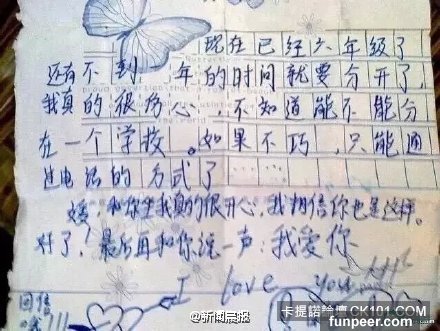 现在已经六年级了
还有不到一年的时间就要分开了,
我真的很秀心,不知道能不能分
在一个学校。如果不巧,只能通
过电话的方式了……
媛:和你坐我真的很开心,我相信你也是这样。
好了!最后再和你说一声:我爱你
I love you
回信
哦!!!
@新闻晨报
卡提諾論壇CK101.COM
funpeer.com